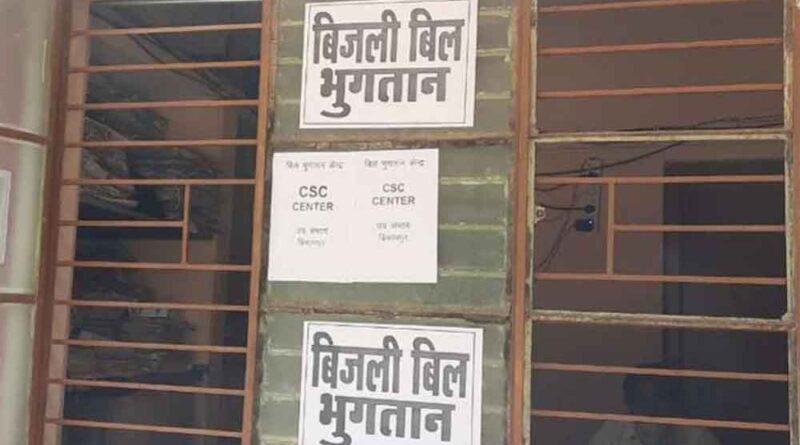 बिजली बिल
भुगतान
बिल भुगतान केन्द्र
CSC
CENTER
बिल भुगतान केन्द्र
CSC
CENTER
बिजली बिल
भुगतान